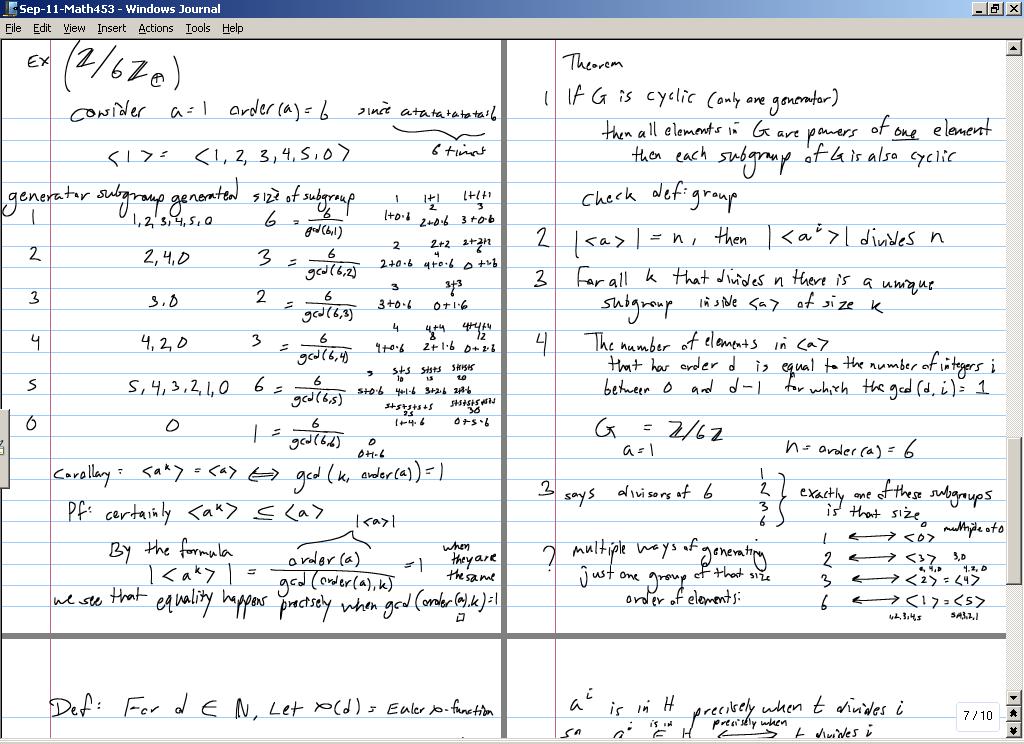 Sep-11-Math453 - Windows Journal
File Edit View Insert Actions Tools Help
Ex (ℤ/6ℤ⊕)
consider a=1 order(a)=6 since a+a+a+a+a+a=6
6 times
<1> = <1, 2, 3, 4, 5, 0>
generator subgroup generated size of subgroup
1 1+1 1+1+1
2 3
1 1,2,3,4,5,0 6 = 6/gcd(6,1) 1+0·6 2+0·6 3+0·6
2 2+2 2+2+2
4 6
2 2,4,0 3 = 6/gcd(6,2) 2+0·6 4+0·6 0+1·6
3 3+3
6
3 3,0 2 = 6/gcd(6,3) 3+0·6 0+1·6
4 4+4 4+4+4
8 12
4 4,2,0 3 = 6/gcd(6,4) 4+0·6 2+1·6 0+2·6
5+5 5+5+5 5+5+5+5
10 15 20
5 5,4,3,2,1,0 6 = 6/gcd(6,5) 5+0·6 4+1·6 3+2·6 2+3·6
5+5+5+5+5 5+5+5+5+5+5
25 30
1+4·6 0+5·6
0 0 1 = 6/gcd(6,6)
0
0+1·6
Corollary: <aᵏ> = <a> ⟺ gcd(k, order(a)) = 1
Pf: certainly <aᵏ> ≤ <a>
|<a>|
By the formula
|<aᵏ>| = order(a)/gcd(order(a),k) = 1 when they are the same
we see that equality happens precisely when gcd(order(a),k)=1
□
Def: For d ∈ ℕ, Let φ(d) = Euler φ-function
Theorem
1 If G is cyclic (only one generator)
then all elements in G are powers of one element
then each subgroup of G is also cyclic
check def: group
2 |<a>| = n, then |<aⁱ>| divides n
3 For all k that divides n there is a unique
subgroup inside <a> of size k
4 The number of elements in <a>
that has order d is equal to the number of integers i
between 0 and d-1 for which the gcd(d,i) = 1
G = ℤ/6ℤ
a=1 n = order(a) = 6
3 says divisors of 6 1 2 3 6 } exactly one of these subgroups
is that size
0 multiple of 0
1 ⟷ <0>
? multiple ways of generating 2 ⟷ <3> 3,0
just one group of that size 3 ⟷ <2> = <4>
order of elements: 6 ⟷ <1> = <5>
aⁱ is in H precisely when t divides i
is in precisely when
so aⁱ ∈ H ⟷ t divides i
7 / 10